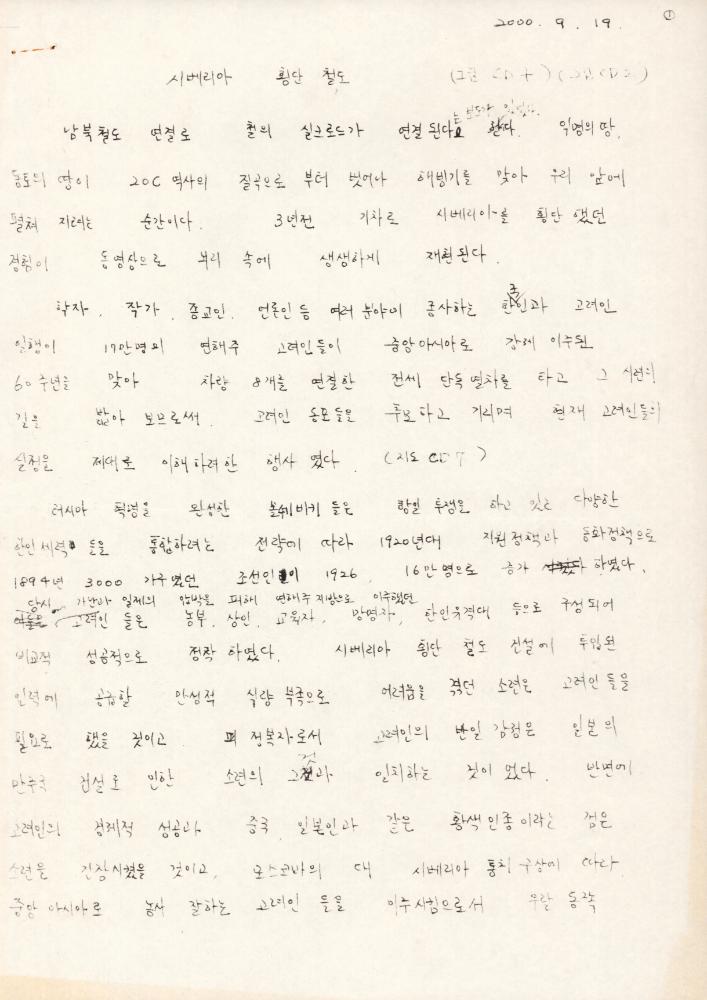 2000. 9. 19. ①
시베리아 횡단 철도 (그림 CD + ) (그림 CD 2)
는 보도가 있었다.
남북철도 연결로 철의 실크로드가 연결된다 한다. 익명의 땅,
동토의 땅이 20C 역사의 질곡으로 부터 벗어나 해빙기를 맞아 우리 앞에
펼쳐 지려는 순간이다. 3년전 기차로 시베리아를 횡단 했던
경험이 동영상으로 뇌리 속에 생생하게 재현된다.
학자, 작가, 종교인, 언론인 등 여러 분야에 종사하는 한국인과 고려인
일행이 17만명의 연해주 고려인들이 중앙아시아로 강제 이주된
60주년을 맞아 차량 8개를 연결한 전세 단독열차를 타고 그 시련의
길을 밟아 보므로써, 고려인 동포들을 추모하고 기리며 현재 고려인들의
실정을 제대로 이해하려한 행사 였다. (지도 CD 7)
러시아 혁명을 완성한 볼쉐비키 들은 항일 투쟁을 하고 있는 다양한
한인세력 들을 통합하려는 전략에 따라 1920년대 지원정책과 동화정책으로
1894년 3000 가구였던 조선인이 1926, 16만명으로 증가 하였다.
당시 가난과 일제의 압박을 피해 연해주 지방으로 이주했던
고려인 들은 농부, 상인, 교육자, 망명자, 한인유격대 등으로 구성되어
비교적 성공적으로 정착 하였다. 시베리아 횡단 철도 건설에 투입된
인력에 공급할 만성적 식량 부족으로 어려움을 겪던 소련은 고려인 들을
필요로 했을 것이고, 피 정복자로서 고려인의 반일 감정은 일본의
만주국 건설로 인한 소련의 그것과 일치하는 것이 었다. 반면에
고려인의 경제적 성공과 중국, 일본인과 같은 황색인종이라는 점은
소련을 긴장시켰을 것이고, 모스코바의 대 시베리아 통치 구상에 따라
중앙 아시아로 농사 잘하는 고려인 들을 이주시킴으로서 우랄 동쪽